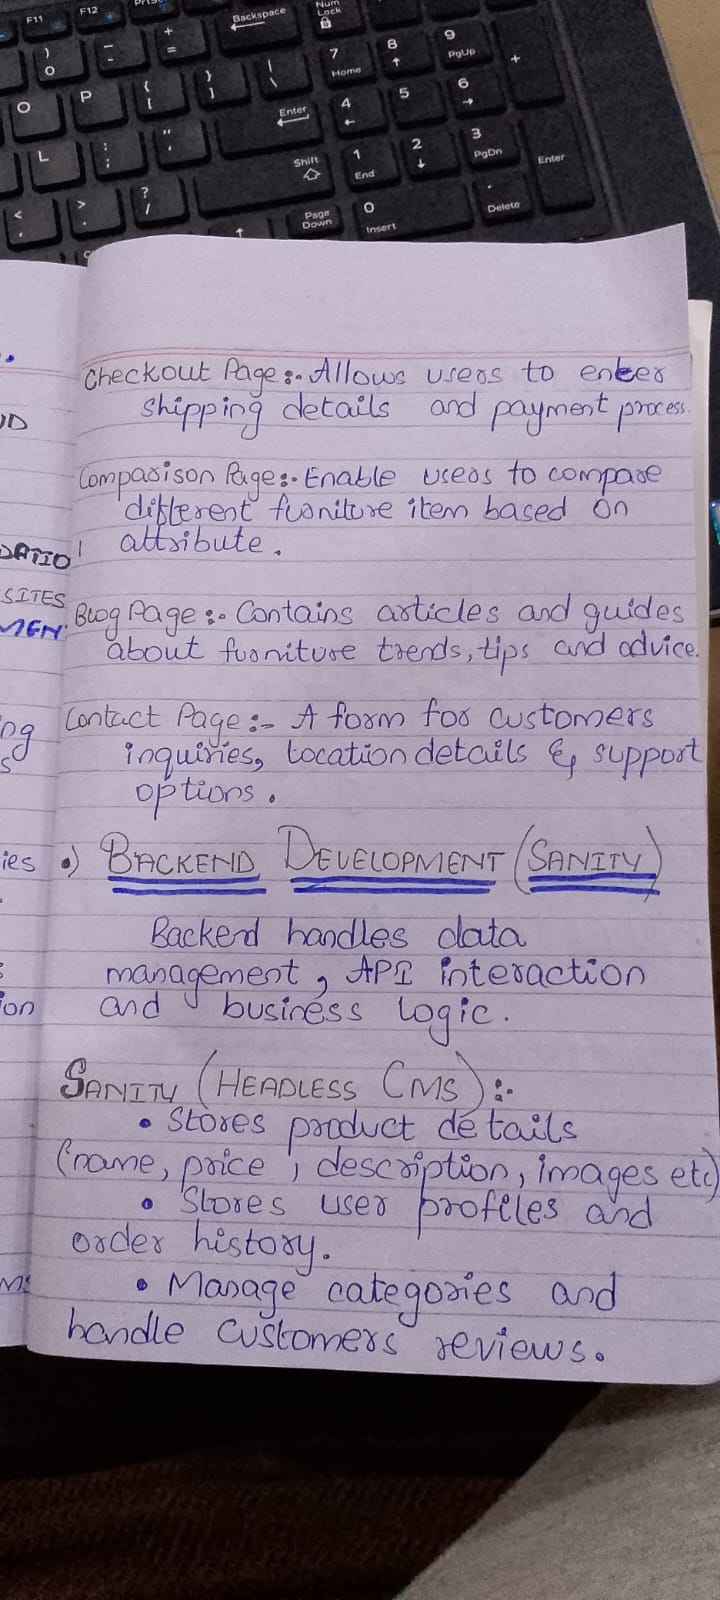 F11 F12
Backspace
Num Lock
7 Home 8 9 PgUp +
O P { [ } ] | \
Enter
4 5 6
L : ; " '
Shift
1 End 2 3 PgDn
Enter
< , > . ? /
Page Down
0 Insert . Delete
Checkout Page:- Allows users to enter
shipping details and payment process.
Comparison Page:- Enable users to compare
different furniture item based on
attribute.
Blog Page:- Contains articles and guides
about furniture trends, tips and advice.
Contact Page:- A form for customers
inquiries, location details & support
options.
•) BACKEND DEVELOPMENT (SANITY)
Backend handles data
management, API interaction
and business logic.
SANITY (HEADLESS CMS):-
• Stores product details
(name, price, description, images etc)
• Stores user profiles and
order history.
• Manage categories and
handle customers reviews.